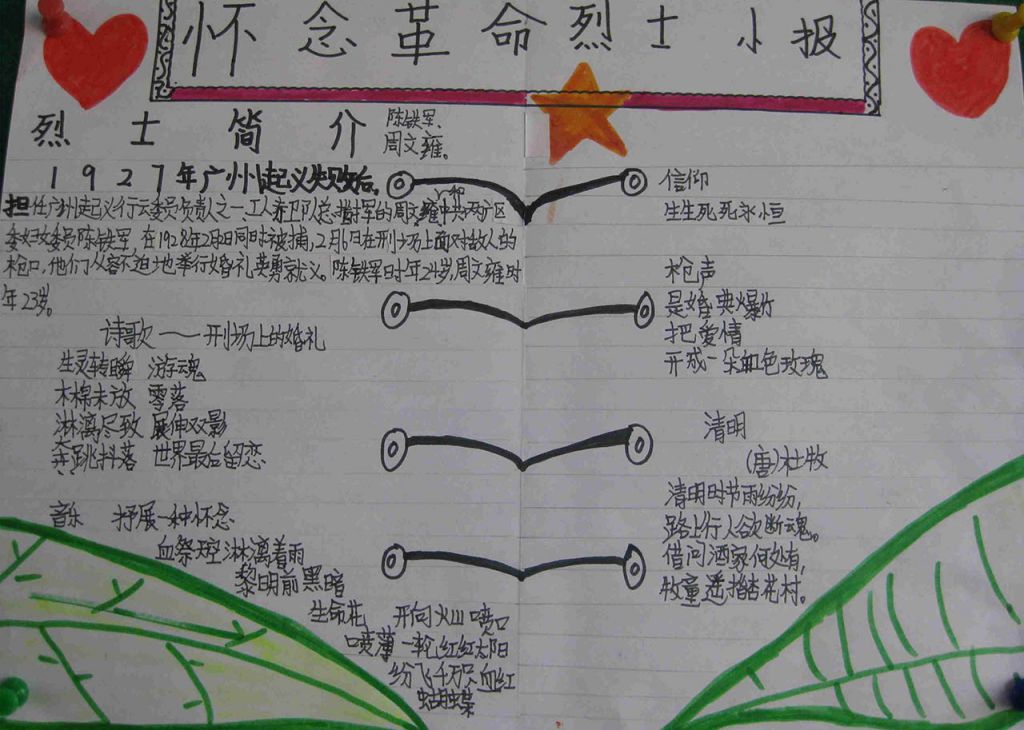 怀念革命烈士小报
烈士简介
陈铁军、
周文雍。
1927年广州起义失败后。
担任广州起义行云委员负责人之一、工人赤卫队总指挥的周文雍和中共两广区
委妇女委员陈铁军,在1928年2月2日同时被捕,2月6日在刑场上面对敌人的
枪口,他们从容不迫地举行婚礼英勇就义。陈铁军时年24岁,周文雍时
年23岁。
诗歌——刑场上的婚礼
生灵转瞬 游魂
木棉未放 零落
淋漓尽致 展伸双影
奔跳抖落 世界最后留恋
音乐 抒展一种怀念
血祭天空淋漓着雨
黎明前黑暗
生命花 开向火山喷口
喷薄一轮红红太阳
纷飞千万只血红
蝴蝶
信仰
生生死死永恒
枪声
是婚典爆竹
把爱情
开成一朵血色玫瑰
清明
(唐)杜牧
清明时节雨纷纷,
路上行人欲断魂。
借问酒家何处有,
牧童遥指杏花村。